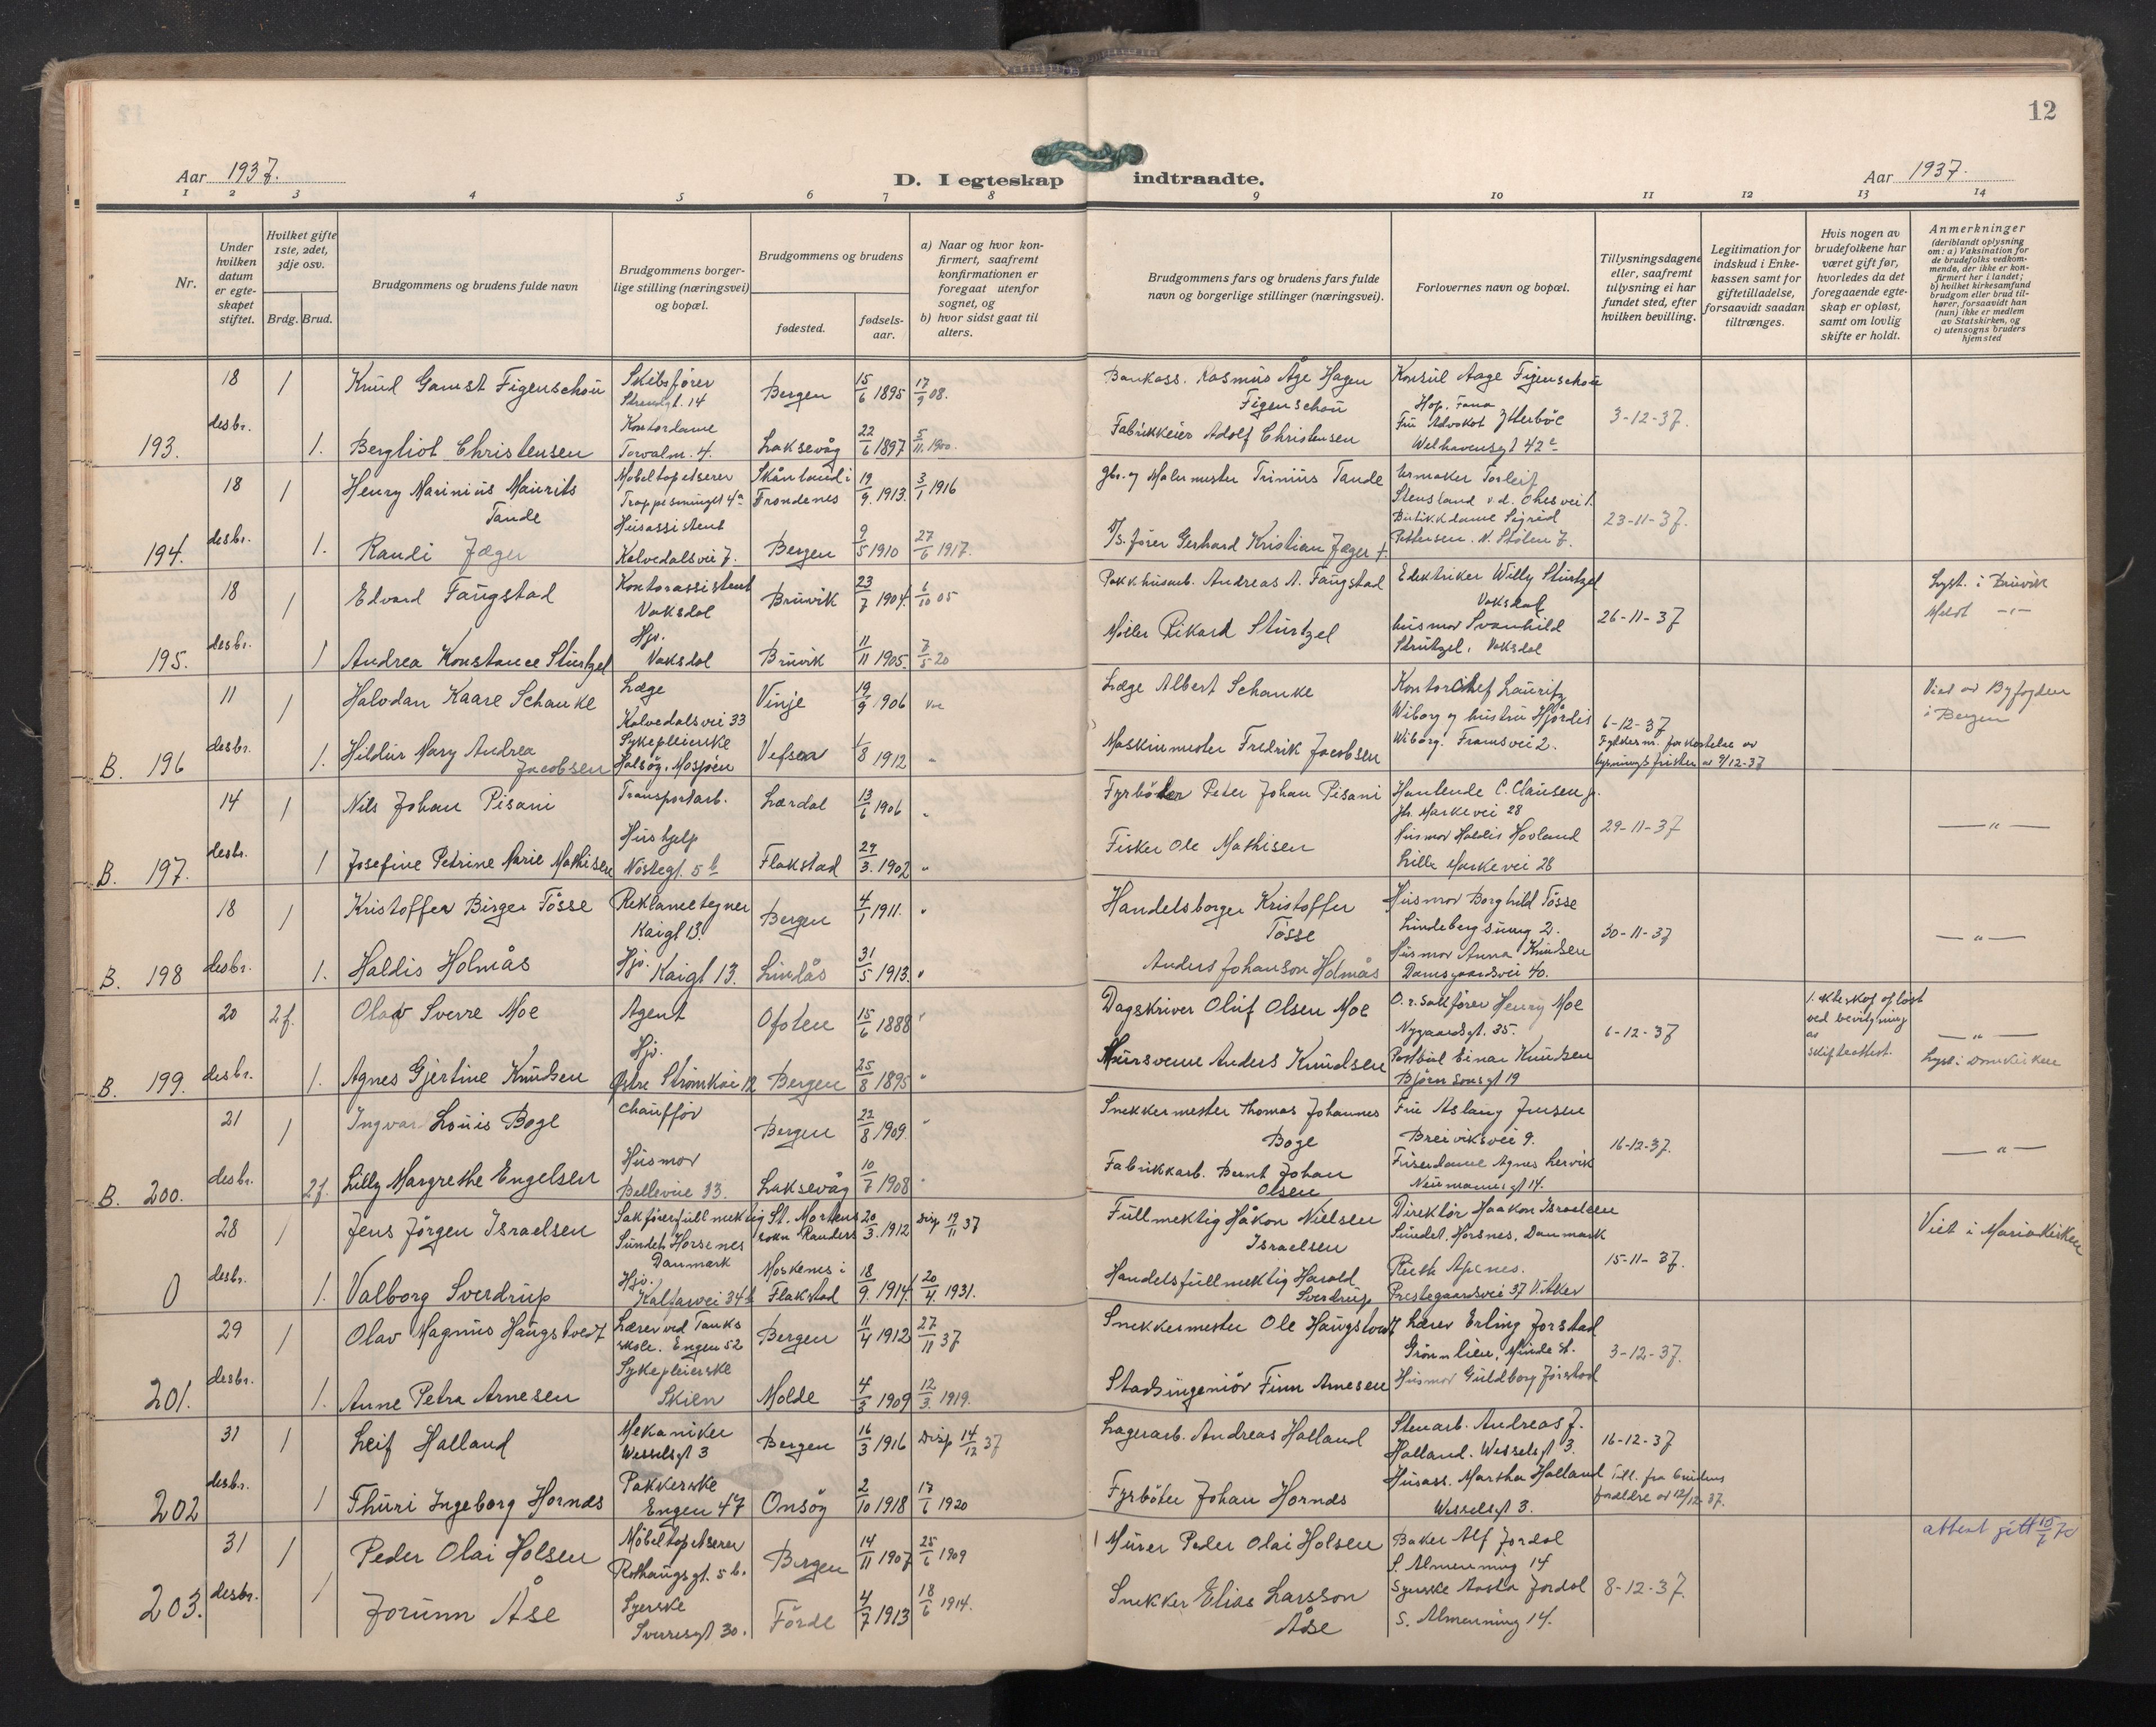 12
Aar 1937.
D. I egteskap indtraadte.
Aar 1937.
1 2 3 4 5 6 7 8 9 10 11 12 13 14
Nr.
Under hvilken datum er egteskapet stiftet.
Hvilket gifte 1ste, 2det, 3dje osv.
Brdg. Brud.
Brudgommens og brudens fulde navn
Brudgommens borgerlige stilling (næringsvei) og bopæl.
Brudgommens og brudens
fødested.
fødselsaar.
a) Naar og hvor konfirmert, saafremt konfirmationen er foregaat utenfor sognet, og
b) hvor sidst gaat til alters.
Brudgommens fars og brudens fars fulde navn og borgerlige stillinger (næringsvei).
Forlovernes navn og bopæl.
Tillysningsdagene eller, saafremt tullysning ei har fundet sted, efter hvilken bevilling.
Legitimation for indskud i Enkekassen samt for giftetilladelse, forsaavidt saadan tiltrænges.
Hvis nogen av brudefolkene har været gift før, hvorledes da det foregaaende egteskap er opløst, samt om lovlig skifte er holdt.
Anmerkninger
(deriblandt oplysning om: a) Vaksination for de brudefolks vedkommende, der ikke er konfirmert her i landet;
b) hvilket kirkesamfund brudgom eller brud tilhører, forsaavidt han (hun) ikke er medlem av Statskirken, og
c) utensogns bruders hjemsted
18 1 Knud Gamst Figenschou Skibsfører Strandgt. 14 Bergen 15/6 1895 17/9 08. Bankass. Rasmus Åge Hagen Figenschou Konsul Aage Figenschou Hop, Fana
193. desbr. 1. Bergliot Christensen Kontordame Torvalm. 4. Laksevåg 22/6 1897 5/11 1900. Fabrikkeier Adolf Christensen Fru Advokat Ytterbøe Welhavensgt 42 3-12-37.
18 1 Henry Marinius Maurits Tande Møbeltapetserer Trappesmuget 4a Skånland i Trondenes 19/9. 1913. 3/1 1916 gbr. og Malermester Trinius Tande Urmaker Torleif Stensland
194. desbr. 1. Randi Jæger Husassistent Kalvedalsvei 7. Bergen 9/5 1910 27/6 1917. D/S. fører Gerhard Kristian Jæger † Butikkdame Sigrid Pettersen. N. Stølen 7. 23-11-37.
18 1 Edvard Fangstad Kontorassistent Vaksdal Bruvik 23/7 1904. 6/10 05 Pakkhusarb. Andreas A. Fangstad Elektriker Willy Sturtzel Vaksdal Lyst. i Bruvik
195. desbr. 1 Andrea Konstance Sturtzel Hjv. Vaksdal Bruvik 11/11 1905. 7/5 20 Møller Rikard Sturtzel husmor Svanhild Strutzel, Vaksdal 26-11-37 Meldt -"-
11 1 Halvdan Kaare Schanke Læge Kalvedalsvei 33 Vinje 19/9 1906 Læge Albert Schanke Kontorchef Lauritz Wiborg og hustru Hjørdis Wiborg. Framsvei 2. Viet av Byfogden i Bergen
B. 196 desbr. 1. Hildur Mary Andrea Jacobsen Sykepleierske Halsøy, Mosjøen Vefsen 1/8 1912 " Maskinmester Fredrik Jacobsen 6-12-37 Fylkesm. forkortelse av lysningsfristen av 9/12-37
14 1 Nils Johan Pisani Transportarb. Lærdal 13/6 1906 " Fyrbøter Peter Johan Pisani Hantlende C. Clausen jr. Marke vei 28
B. 197. desbr. 1 Josefine Petrine Marie Mathisen Hushjelp Nøstegt. 5b Flakstad 29/3. 1902 " Fisker Ole Mathisen Husmor Haldis Hovland Lille Markevei 28 29-11-37 — " —
18 1 Kristoffer Birger Tøsse Reklametegner Kaigt 13. Bergen 4/1 1911. " Handelsborger Kristoffer Tøsse Husmor Borghild Tøsse Lindebergsmug 2.
B. 198 desbr. 1. Haldis Holmås Hjv. Kaigt 13. Lindås 31/5 1913. " Anders Johanson Holmås Husmor Anna Knudsen Damsgaardsvei 40. 30-11-37 — " —
20 2f. Olav Sverre Moe Agent Ofoten 15/6 1888 " Dagskriver Oluf Olsen Moe O.r. sakfører Henry Moe Nygaardsgt. 35. 1. ekteskap opløst ved bevilgning av — " —
B. 199. desbr. 1. Agnes Gjertine Knudsen Hjv. Østre Strømkai 12 Bergen 25/8 1895 " Mursvenn Anders Knudsen Postbud Einar Knudsen Bjørnsonsgt 19 6-12-37 skifteattest. Lyst i Domkirken
21 1 Ingvar Louis Boge chauffør Bergen 22/8 1909. " Snekkermester Thomas Johannes Boge Fru Aslaug Jensen Breiviksvei 9.
B. 200. desbr. 2f. Lilly Margrethe Engelsen Husmor Bellevue 33. Laksevåg 10/7 1908 " Fabrikkarb. Bernt Johan Olsen Frisørdame Agnes Lervik Neumannsgt 14. 16-12-37. — " —
28 1 Jens Jørgen Israelsen Sakførerfullmektig Sundet, Horsenes Danmark St. Mortens sokn Randers 20/3. 1912 Disp 19/11 37 Fullmektig Håkon Nielsen Israelsen Direktør Haakon Israelsen Sundet, Horsnes, Danmark Viet i Mariakirken
0 desbr. 1. Valborg Sverdrup Hjv. Kalfarvei 34b Moskenes i Flakstad 18/9. 1914. 20/4. 1931. Handelsfullmektig Harald Sverdrup Ruth Apenes. Prestegaardsvei 37 V. Aker 15-11-37.
29 1 Olav Magnus Haugstvedt Lærer ved Tanks skole. Engen 52 Bergen 11/4 1912 27/11 37 Snekkermester Ole Haugstvedt Lærer Erling Jorstad Grønnlien, Minde st.
201. desbr. 1. Anne Petra Arnesen Sykepleierske Skien Molde 4/3 1909 12/3. 1919. Stadsingeniør Finn Arnesen Husmor Guldborg Jorstad 3-12-37.
31 1 Leif Halland Mekaniker Wesselsgt 3 Bergen 16/3 1916 Disp 14/12 37 Lagerarb. Andreas Halland Stenarb. Andreas J. Halland. Wesselsgt 3. 16-12-37
202 desbr. 1 Thuri Ingeborg Hornds Pakkerske Engen 47 Onsøy 2/10 1918 17/6 1920 Fyrbøter Johan Hornds Husass. Martha Halland Wesselsgt 3. Till. fra brudens foreldre av 12/12 37.
31 1 Peder Olai Holsen Møbeltapetserer Rothaugsgt. 5 b. Bergen 14/11 1907 25/6 1909 Murer Peder Olai Holsen Baker Alf Jordal S. Almenning 14 attest gitt 15/7 70
203. desbr. 1 Jorunn Åse Syerske Sverresgt 30. Førde 4/7 1913 18/6 1914. Snekker Elias Larsson Åse Syerske Aasta Jordal S. Almenning 14. 8-12-37.